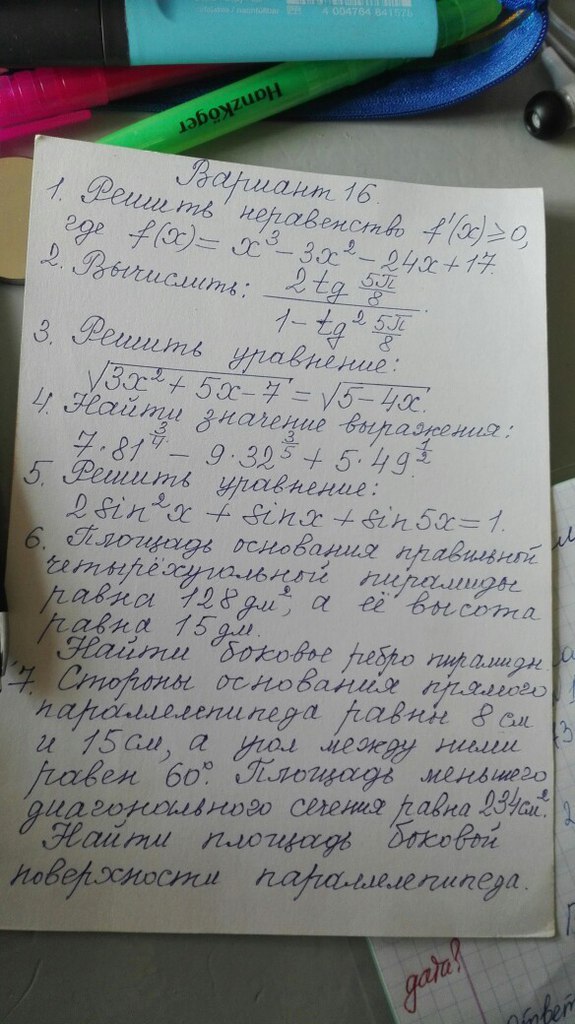 4 004764 841578
HanzKöger
Вариант 16.
1. Решить неравенство f'(x) ≥ 0,
где f(x) = x³ - 3x² - 24x + 17.
2. Вычислить: (2 tg 5π/8) / (1 - tg² 5π/8).
3. Решить уравнение:
√(3x² + 5x - 7) = √(5 - 4x).
4. Найти значение выражения:
7·81^(3/4) - 9·32^(3/5) + 5·49^(1/2)
5. Решить уравнение:
2 sin²x + sin x + sin 5x = 1.
6. Площадь основания правильной
четырёхугольной пирамиды
равна 128 дм², а её высота
равна 15 дм.
Найти боковое ребро пирамиды
7. Стороны основания прямого
параллелепипеда равны 8 см
и 15 см, а угол между ними
равен 60°. Площадь меньшего
диагонального сечения равна 234 см².
Найти площадь боковой
поверхности параллелепипеда.
дата?
Ответ